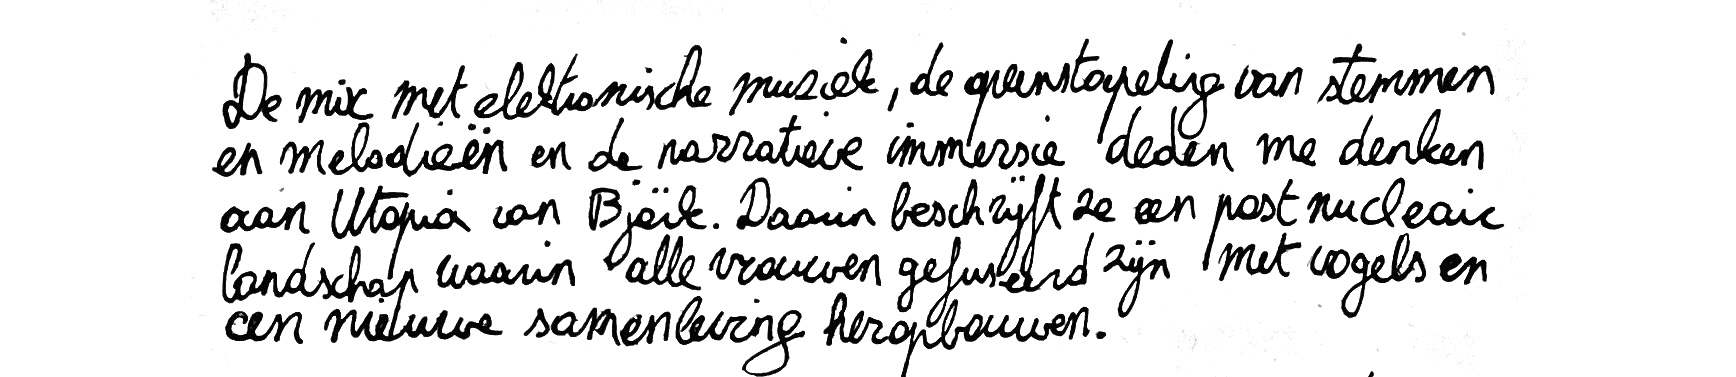 De mix met elektronische muziek, de opeenstapeling van stemmen
en melodieën en de narratieve immersie deden me denken
aan Utopia van Björk. Daarin beschrijft ze een post nucleair
landschap waarin alle vrouwen gefuseerd zijn met vogels en
een nieuwe samenleving heropbouwen.